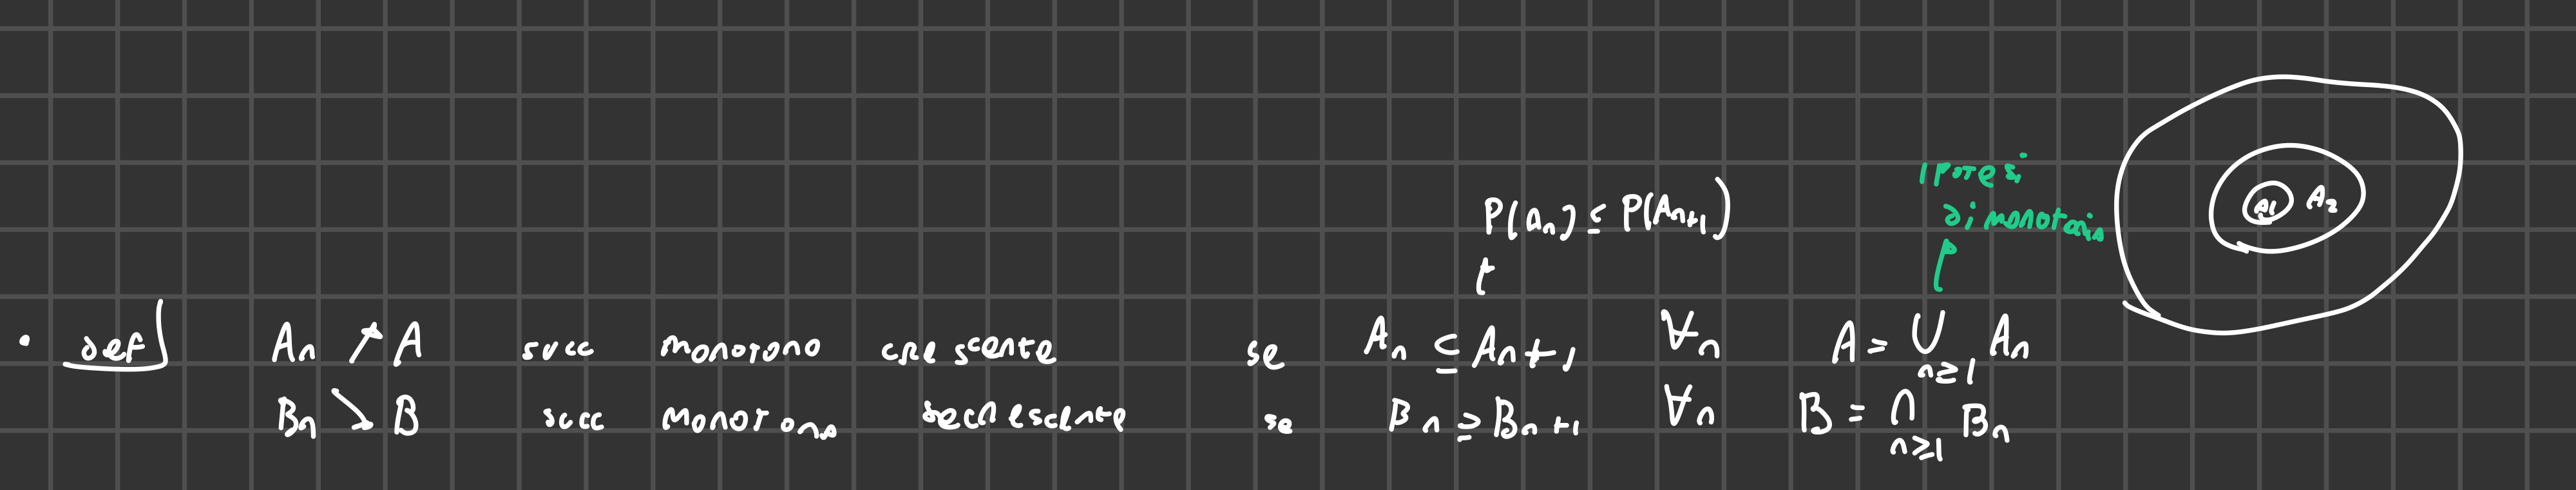 ipotesi
di monotonia
A1 A2
P(An) ≤ P(An+1)
• def) An ↗ A succ monotono crescente se An ⊆ An+1 ∀n A = ⋃ n≥1 An
Bn ↘ B succ monotona decrescente se Bn ⊇ Bn+1 ∀n B = ⋂ n≥1 Bn